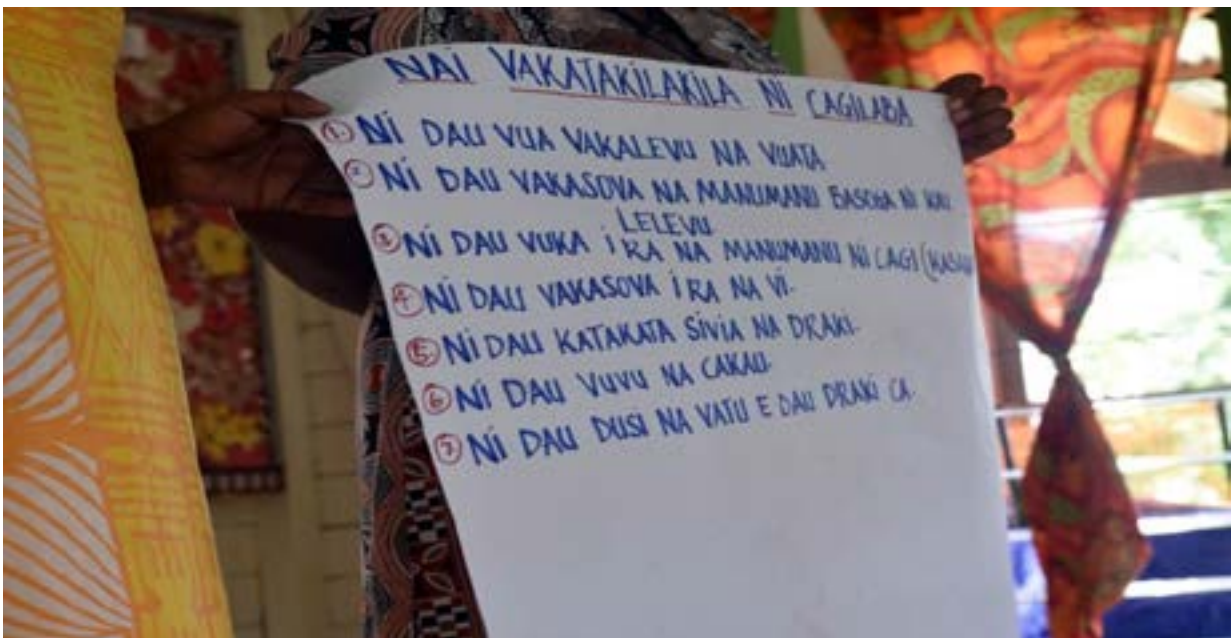 NAI VAKATAKILAKILA NI CAGILABA
1. NI DAU VUA VAKALEVU NA VUATA
2. NI DAU VAKASOVA NA MANUMANU NI KAU
LELEVU
3. NI DAU VUKA IRA NA MANUMANU NI CAGI (KASAQA
4. NI DAU VAKASOVA IRA NA VI.
5. NI DAU KATAKATA SIVIA NA DRAKI.
6. NI DAU VUVU NA CAKAU.
7. NI DAU DUSI NA VATU E DAU DRAKI CA.